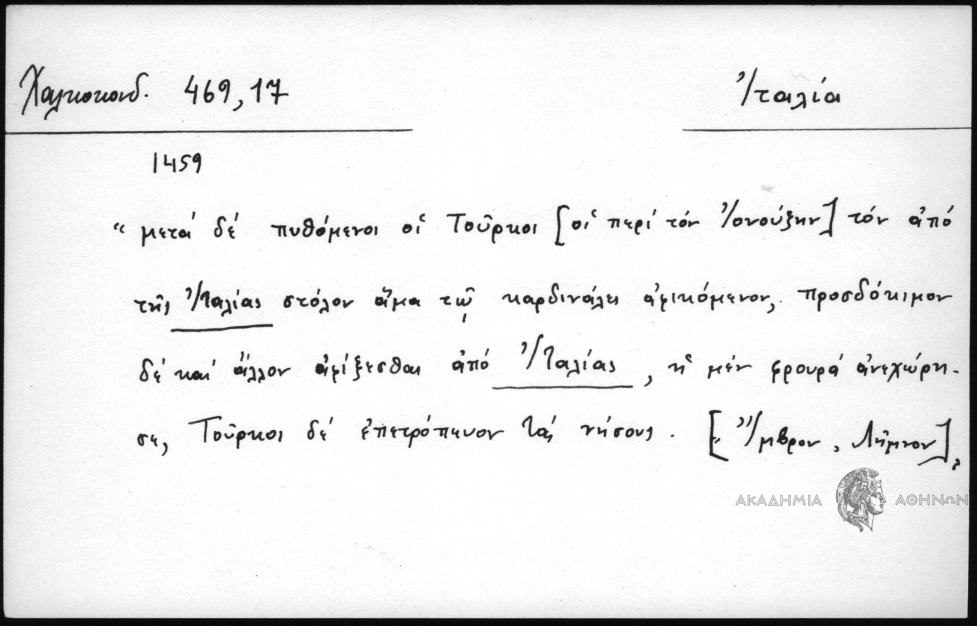 Χαλκοκονδ. 469,17
Ἰταλία
1459
“ μετά δέ πυθόμενοι οἱ Τοῦρκοι [οἱ περί τόν Ἰονούξην] τόν ἀπό
τῆς Ἰταλίας στόλον ἅμα τῷ καρδινάλει ἀφικόμενον, προσδόκιμον
δέ καί ἄλλον ἀφίξεσθαι ἀπό Ἰταλίας, ἡ μέν φρουρά ἀνεχώρη-
σε, Τοῦρκοι δέ ἐπετρόπευον τάς νήσους. [Ἴμβρον, Λῆμνον]
ΑΚΑΔΗΜΙΑ ΑΘΗΝΩΝ